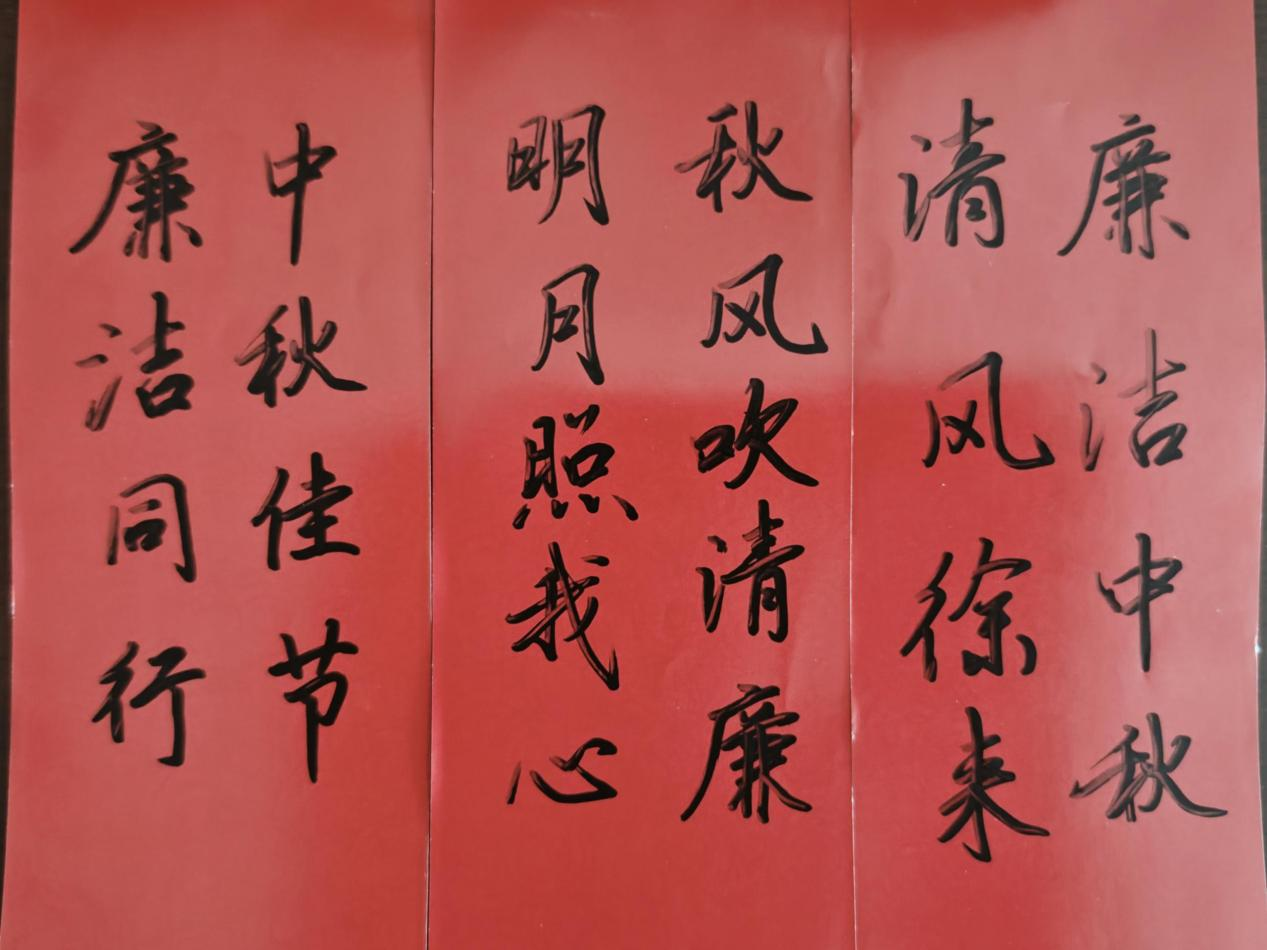 廉洁中秋
清风徐来
秋风吹清廉
明月照我心
中秋佳节
廉洁同行